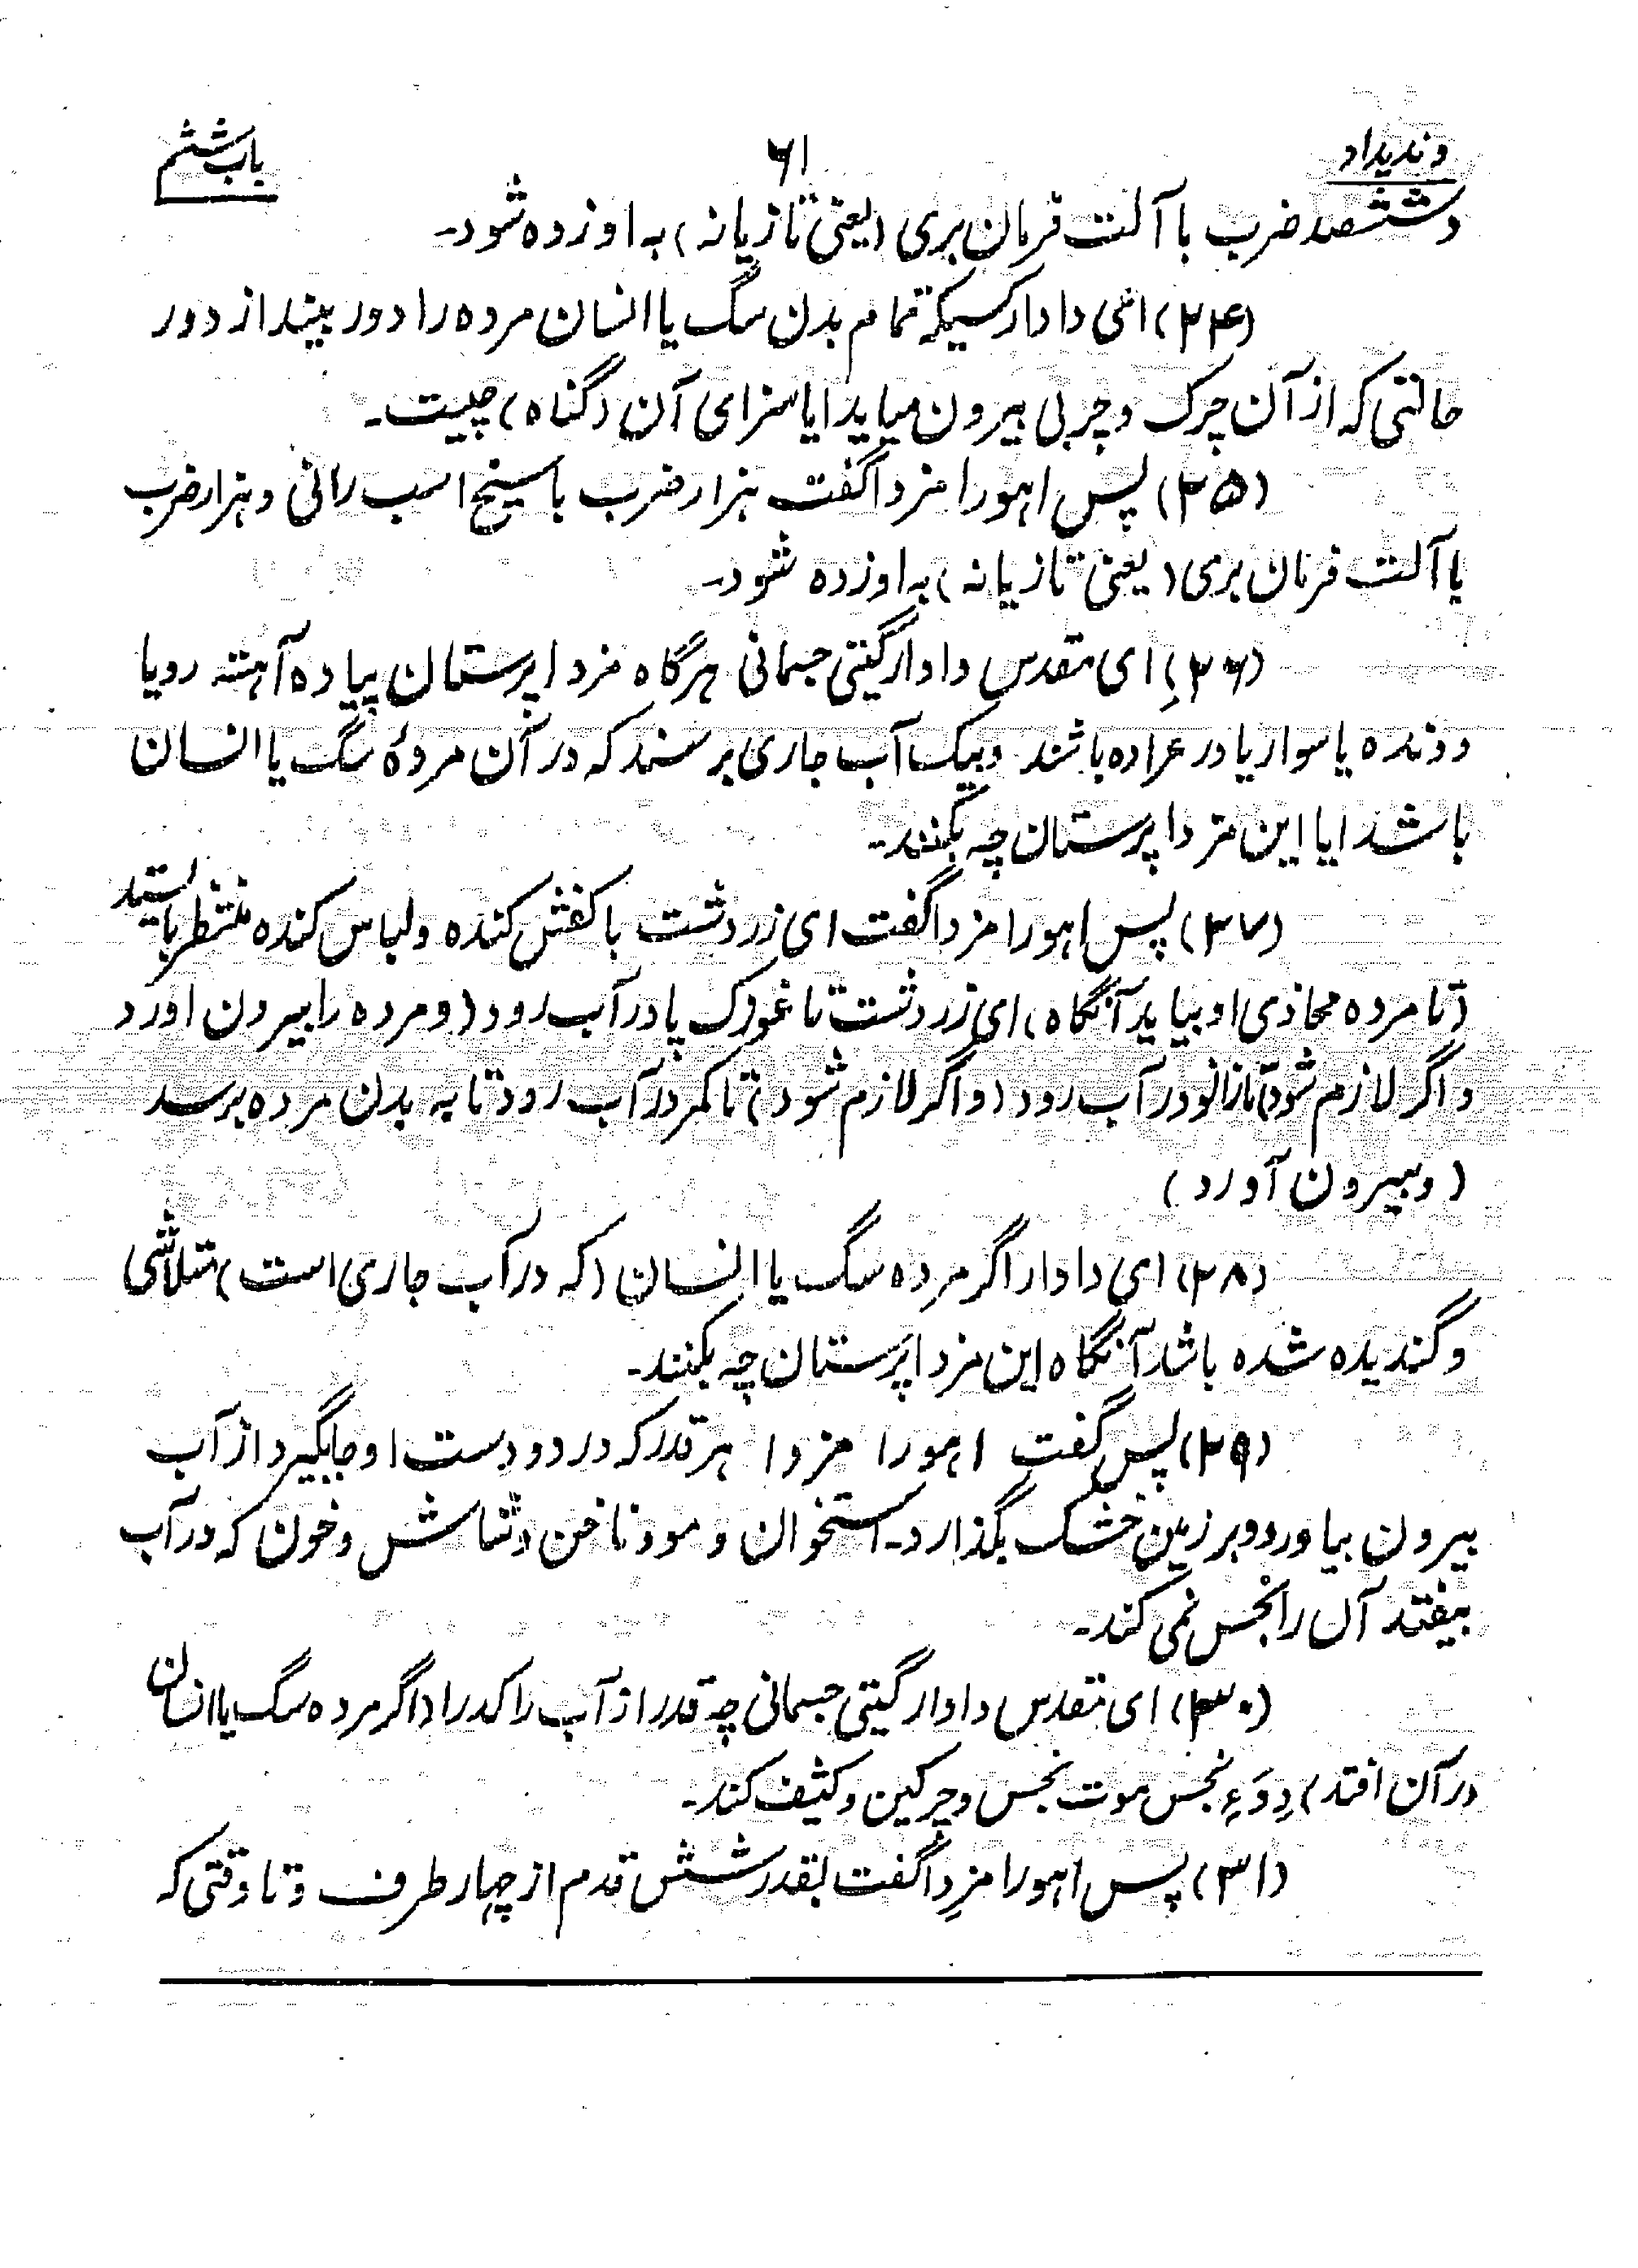 وندیداد
۶۱
باب ششم
وششصد ضرب با آلت فرمان بری (یعنی تازیانه) به او زده شود-
(۲۴) ای دادار کسیکه تمام بدن سگ یا انسان مرده را دور بیندازد در
حالتی که از آن چرک و چربی بیرون میاید ایا سزای آن (گناه) چیست-
(۲۵) پس اهورا مزدا گفت هزار ضرب با سیخ اسب رانی و هزار ضرب
با آلت فرمان بری (یعنی تازیانه) به او زده شود-
(۲۶) ای مقدس دادار گیتی جسمانی هرگاه مزدا پرستان پیاده آهسته رو یا
دونده یا سوار یا در عراده باشند و بیک آب جاری برسند که در آن مردهٔ سگ یا انسان
باشد ایا این مزدا پرستان چه بکنند-
(۲۷) پس اهورا مزدا گفت ای زردشت با کفش کنده و لباس کنده منتظر بایستید
(تا مرده محاذی او بیاید آنگاه) ای زردشت تا غوزک پا در آب رود (و مرده را بیرون اورد
و اگر لازم شود) تا زانو در آب رود (و اگر لازم شود) تا کمر در آب رود تا به بدن مرده برسد
(و بیرون آورد)
(۲۸) ای دادار اگر مرده سگ یا انسان (که در آب جاری است) متلاشی
و گندیده شده باشد آنگاه این مزدا پرستان چه بکنند-
(۲۹) پس گفت اهورا مزدا هر قدر که در دو دست او جا بگیرد از آب
بیرون بیاورد و بر زمین خشک بگذارد- استخوان و مو و ناخن و شاش و خون که در آب
بیفتد آن را نجس نمی کند-
(۳۰) ای مقدس دادار گیتی جسمانی چه قدر از آب راکد را (اگر مرده سگ یا انسان
در آن افتد) دِوَءِ نجس موت نجس و چرکین و کثیف کند-
(۳۱) پس اهورا مزدا گفت بقدر شش قدم از چهار طرف و تا وقتی که